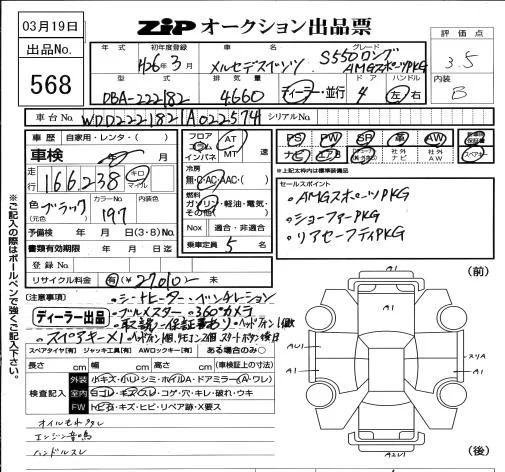 03月19日
ZIP オークション出品票
出品No.
568
評価点
3.5
内装
B
年式 初年度登録 車名 グレード
H26年3月 メルセデスベンツ S550ロング
AMGスポーツPKG
型式 排気量 ドア ハンドル
DBA-222182 4660 ディーラー・並行 4 左 右
車台No. WDD222182 1A022574 シリアルNo.
車歴 自家用・レンタ・( )
車検
走行 166,238 キロ マイル
色(元色) ブラック カラーNo. 197 内装色
予備検 年 月 日(3・8)モ
書類有効期限 年 月 日迄
登録No.
リサイクル料金 有(¥27010) 未
フロア コラム インパネ AT MT 速
冷房
無・C・AC・AAC・( )
燃料
ガソリン・軽油・電気・
その他( )
Nox 適合・非適合
乗車定員 5 名
PS PW SR 革 AW
ナビ
社外ナビ 社外AW
スペアキー
※上記太枠内は標準装備品
セールスポイント
・AMGスポーツPKG
・ショーファーPKG
・リアセーフティPKG
【注意事項】
・シートヒーター・ベンチレーション
ディーラー出品
・ブルメスター・360°カメラ
・取説・保証書あり・ヘッドフォン1個欠
・スペアキー×1
スペアタイヤ【有】 ジャッキ工具【有】 AWロックキー【有】 ある場合のみ○
長さ cm 幅 cm 高さ cm (車検証上の寸法)
検査記入
外装 小キズ・小U・シミ・ホイルA・ドアミラー(A・ワレ)
室内 ヨゴレ・キズ・スレ・コゲ・穴・キレ・破れ・ウキ
FW トビ石・キズ・ヒビ・リペア跡・X要ス
オイルモレ
エンジン音鳴
ハンドルスレ
※ご記入の際はボールペンで強くご記入下さい。
(前)
A1
A1
A1
AU1
A1
A1
(後)